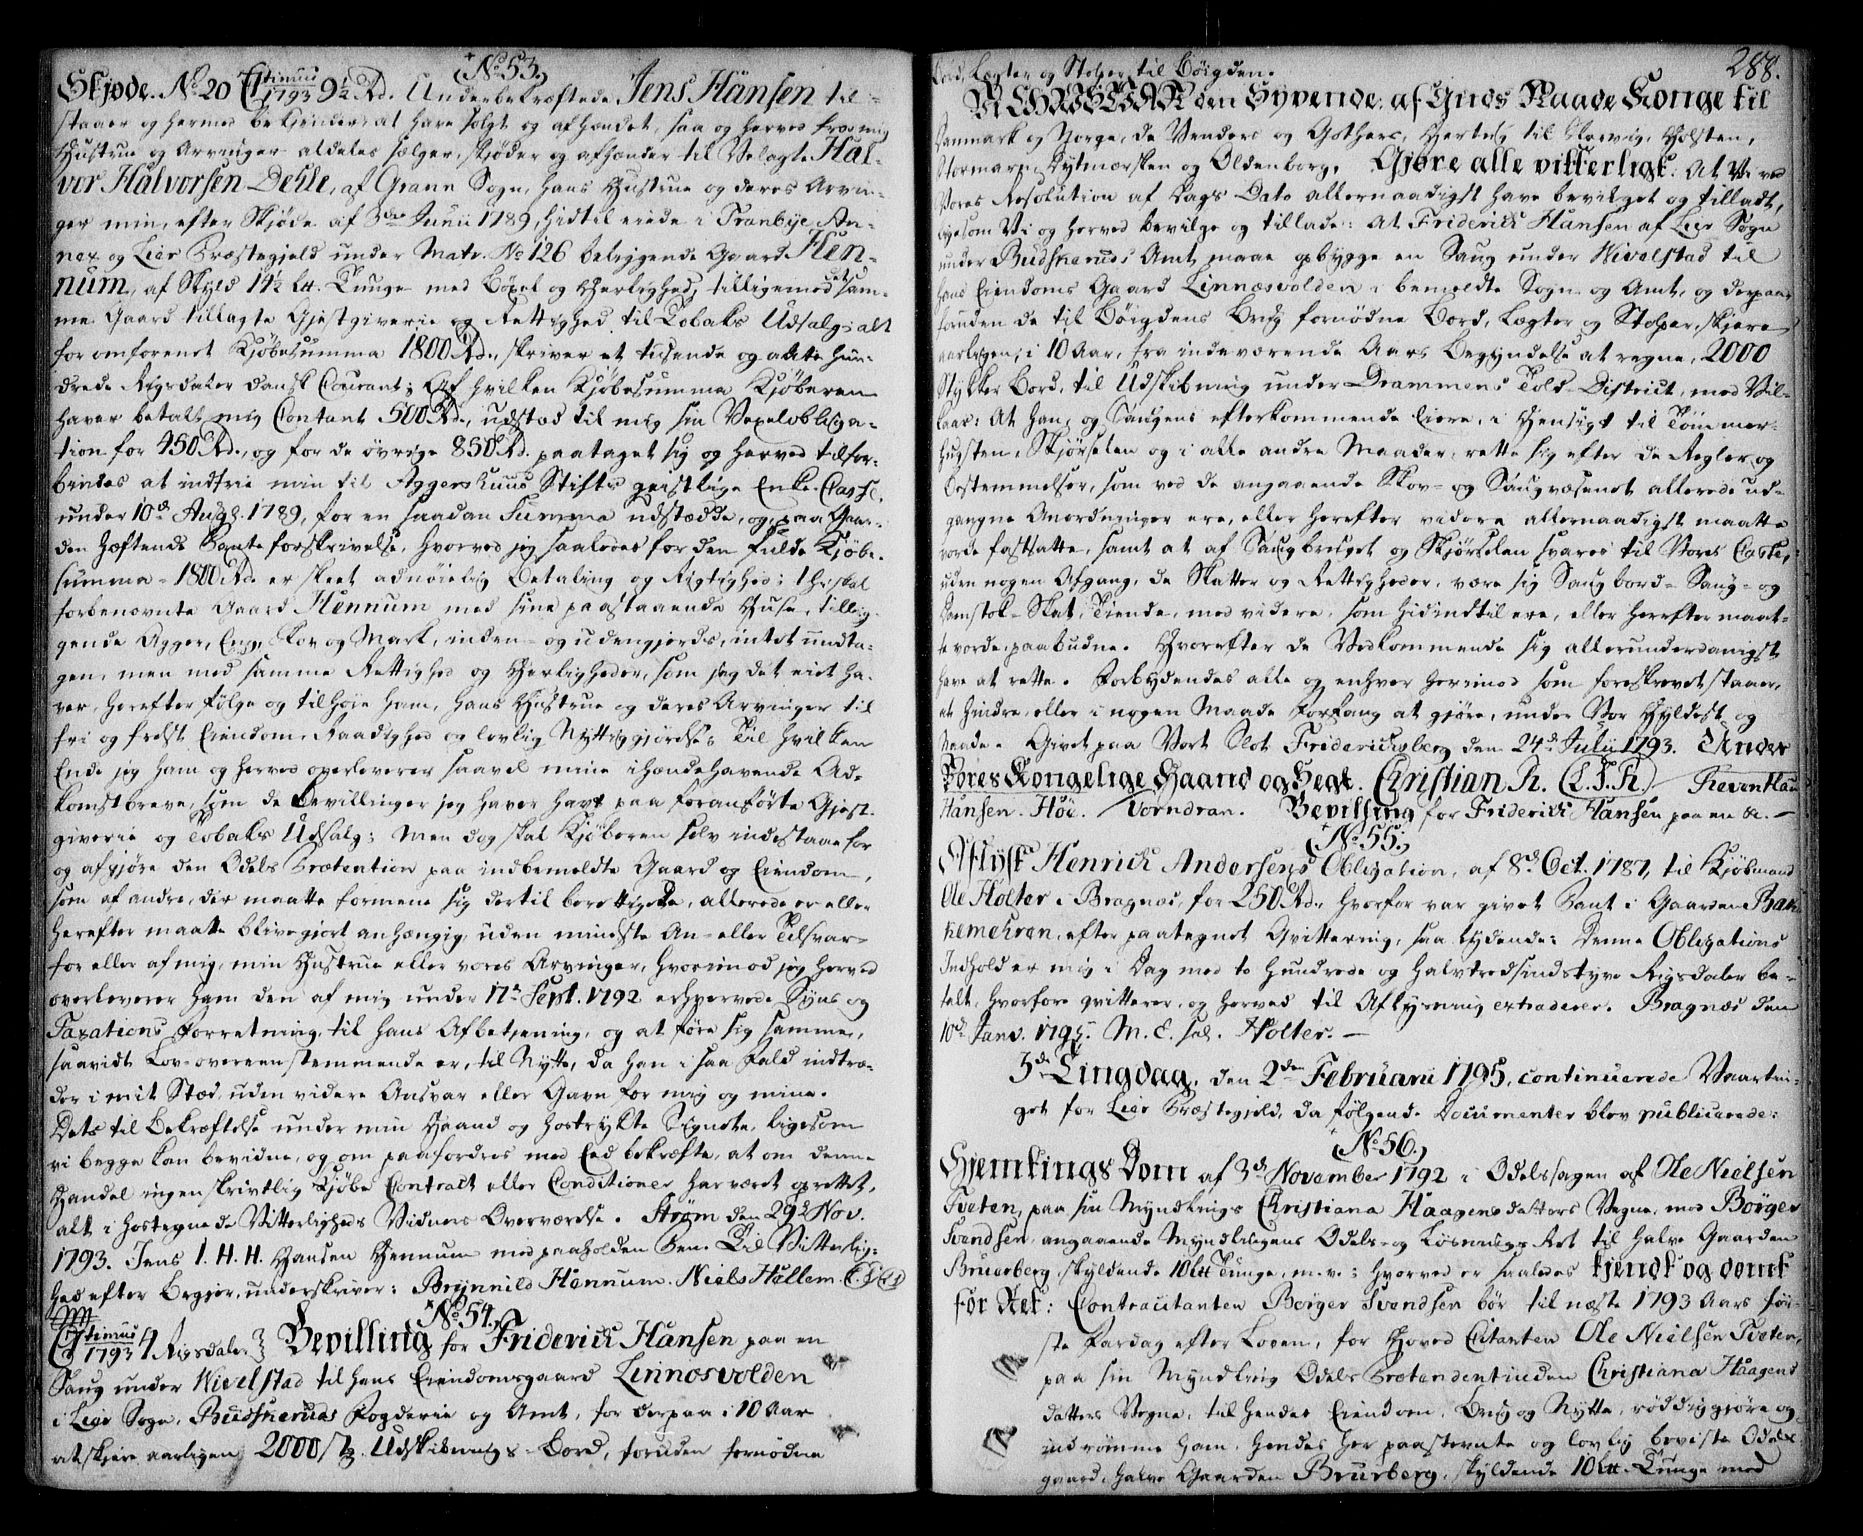 (No 53.)
Skjøde. No 20 Ct timus 1793 9½ Rd. Underbekræftede Jens Hansen til-
staaer og hermed bekjender: at have solgt og afhændet, saa og herved fra mig
Hustrue og Arvinger aldeles sælger, skjøder og afhænder til Velagte Hal-
vor Halvorsen Dehle, af Grann Sogn, hans Hustrue og deres Arvin-
ger min, efter Skjøde af 3die Junii 1789, hidtil eiede i Tranbye An-
nex og Lier Præstegjeld under Matr. No 126 beliggende Gaard Hen-
num, af Skyld 14½ Lt. Tunge med Bøxel og Herlighed, tilligemed det sam-
me Gaard tillagte Gjestgiverie og Rettighed til Tobaks Udsalg; alt
for omforenet Kjøbesumma 1800 Rd., skriver et tusende og otte hun-
drede Rigsdaler dansk Courant; Af hvilken Kjøbesumma Kjøberen
haver betalt mig Contant 500 Rd., udstæd til mig sin Vexelobliga-
tion for 450 Rd., og for de øvrige 850 Rd. paataget sig og herved tilfor-
bindes at indfrie min til Aggershuus Stifts geistlige Enke-Casse,
under 10d Aug. 1789, for en saadan Summa udstædde, og paa Gaar-
den hæftende Panteforskrivelse, hvorved jeg saaledes for den fulde Kjøbe-
summa 1800 Rd. er skeet adnøielig Betaling og Rigtighed; Thi skal
forbenævnte Gaard Hennum med sine paastaaende Huse, tillig-
gende Agger, Eng, Skov og Mark, inden- og udengjerds, intet undta-
gen, men med samme Rettighed og Herligheder, som jeg det eiet ha-
ver, herefter følge og tilhøre ham, hans Hustrue og deres Arvinger til
fri og frelst Eiendom, Raadighed og lovlig Nyttiggjørelse; Til hvilken
Ende jeg ham og herved overleverer saavel mine ihændehavende Ad-
komstbreve, som de Bevillinger jeg haver havt paa foranførte Gjest-
giverie og Tobaks Udsalg; Men dog skal Kjøberen selv indestaae for
og afgjøre den Odels Prætention paa indbemeldte Gaard og Eiendom,
som af andre, der maatte formene sig dertil berettigede, allerede er eller
herefter maatte blive gjort anhængig, uden mindste An- eller Tilsvar
for eller af mig, min Hustrue eller vores Arvinger, hvorimod jeg herved
overleverer ham den af mig under 17d Sept. 1792 erhvervede Syns og
Taxations Forretning, til hans Afbetjening, og at føre sig samme,
saavidt Lov-overeenstemmende er, til Nytte, da han i saa Fald indtræ-
der i mit Stæd, uden videre Ansvar eller Gavn for mig og mine.
Dets til Bekræftelse under min Haand og hostrykte Signete, ligesom
vi begge kan bevidne, og om paafordres med Eed bekræfte, at om denne
Handel ingen skrivtlig Kjøbe Contract eller Conditioner har været oprettet,
alt i hostegnede Vitterligheds Vidners Overværelse. Strøm den 29d Nov.
1793. Jens I. H. H. Hansen Hennum med paaholden Pen. Til Vitterlig-
hed efter Begjer, underskriver: Brynnild Hennum. Niels Hellem.
No 54.
Ct timus 1793 4 Rigsdaler} Bevilling for Friderich Hansen paa en
Saug under Nivelstad til hans Eiendomsgaard Linnesvolden
i Lier Sogn, Budskeruds Fogderie og Amt, for derpaa i 10 Aar
at skjere aarligen 2000 Udskibnings-Bord, foruden fornødne
288.
Bord, Legter og Stolper til Bøigden.
CHRISTIAN den Syvende, af Guds Naade Konge til
Danmark og Norge, de Venders og Gothers, Hertug til Slesvig, Holsten,
Stormarn, Dytmersken og Oldenborg, Gjøre alle vitterligt: At Vi ved
Vores Resolution af Dags Dato allernaadigst have bevilget og tilladt,
ligesom Vi og herved bevilge og tillade: At Friderich Hansen af Lier Sogn
under Budskeruds Amt maae opbygge en Saug under Nivelstad til
hans Eiendoms Gaard Linnesvolden i bemeldte Sogn og Amt, og derpaa,
foruden de til Bøigdens Brug fornødne Bord, Legter og Stolper, skjere
aarligen, i 10 Aar, fra indeværende Aars Begyndelse at regne, 2000
Stykker Bord, til Udskibning under Drammens Told-District, med Vil-
kaar: At han, og Saugens efterkommende Eiere, i Hensigt til Tømmer-
hugsten, Skjørselen og i alle andre Maader, rette sig efter de Regler og
Bestemmelser, som ved de angaaende Skov- og Saugvæsenet allerede ud-
gangne Anordninger ere, eller herefter videre allernaadigst maatte
vorde fastsatte, samt at af Saugbruget og Skjørselen svares til Vores Casse,
uden nogen Afgang, de Skatter og Rettigheder, være sig Saugbord- Saug- og
Damstok-Skat, Tiende, med videre, som hidindtil ere, eller herefter maat-
te vorde, paabudne. Hvorefter de Vedkommende sig allerunderdanigst
have at rette. Forbydendes alle og enhver herimod som foreskrevet staaer,
at hindre, eller i nogen Maade Forfang at gjøre, under Vor Hyldest og
Naade. Givet paa Vort Slot Friderichsberg den 24d Julii 1793. Under
Vores Kongelige Haand og Segl. Christian R. (L.S.R.)
Hansen. Høe. / Vorndran. Bevilling for Friderich Hansen paa en &c.
(No 55.)
Aflyst Henrich Andersens Obligation, af 8d Oct. 1787, til Kjøbmand
Ole Holter i Bragnæs, for 250 Rd., hvorfor var givet Pant i Gaarden Bak-
kemehren, efter paategnet Qvittering, saa lydende: Denne Obligations
Indhold er mig i Dag med to hundrede og halvtredsindstyve Rigsdaler be-
talt, hvorfore qvitterer, og herved til Aflysning extraderer. Bragnæs den
10d Janv. 1795. M. E. sal. Holter. —
3de Tingdag, den 2den Februarii 1795, continuerede Vaartin-
get for Lier Præstegjeld, da følgende Documenter blev publicerede:
(No 56.)
Hjemtings Dom af 3d November 1792 i Odelssagen af Ole Nielsen
Tveten, paa sin Myndlings Christiana Haagensdatters Vegne, mod Børger
Svendsen, angaaende Myndlingens Odels- og Løsnings Ret til halve Gaarden
Bruerberg, skyldende 10 Lt Tunge, m. v.; hvorved er saaledes kjendt og dømt
for Ret: Contracitanten Børger Svendsen bør til næste 1793 Aars før-
ste Fardag efter Loven, for Hoved Citanten Ole Nielsen Tveten,
paa sin Myndling Odels Prætendentinden Christiana Haagens
datters Vegne, til hendes Eiendom, Brug og Nytte, ryddiggjøre og
indrømme ham, hendes her paastevnte og lovlig beviste Odels
gaard, halve Gaarden Bruerberg, skyldende 10 Lt. Tunge med